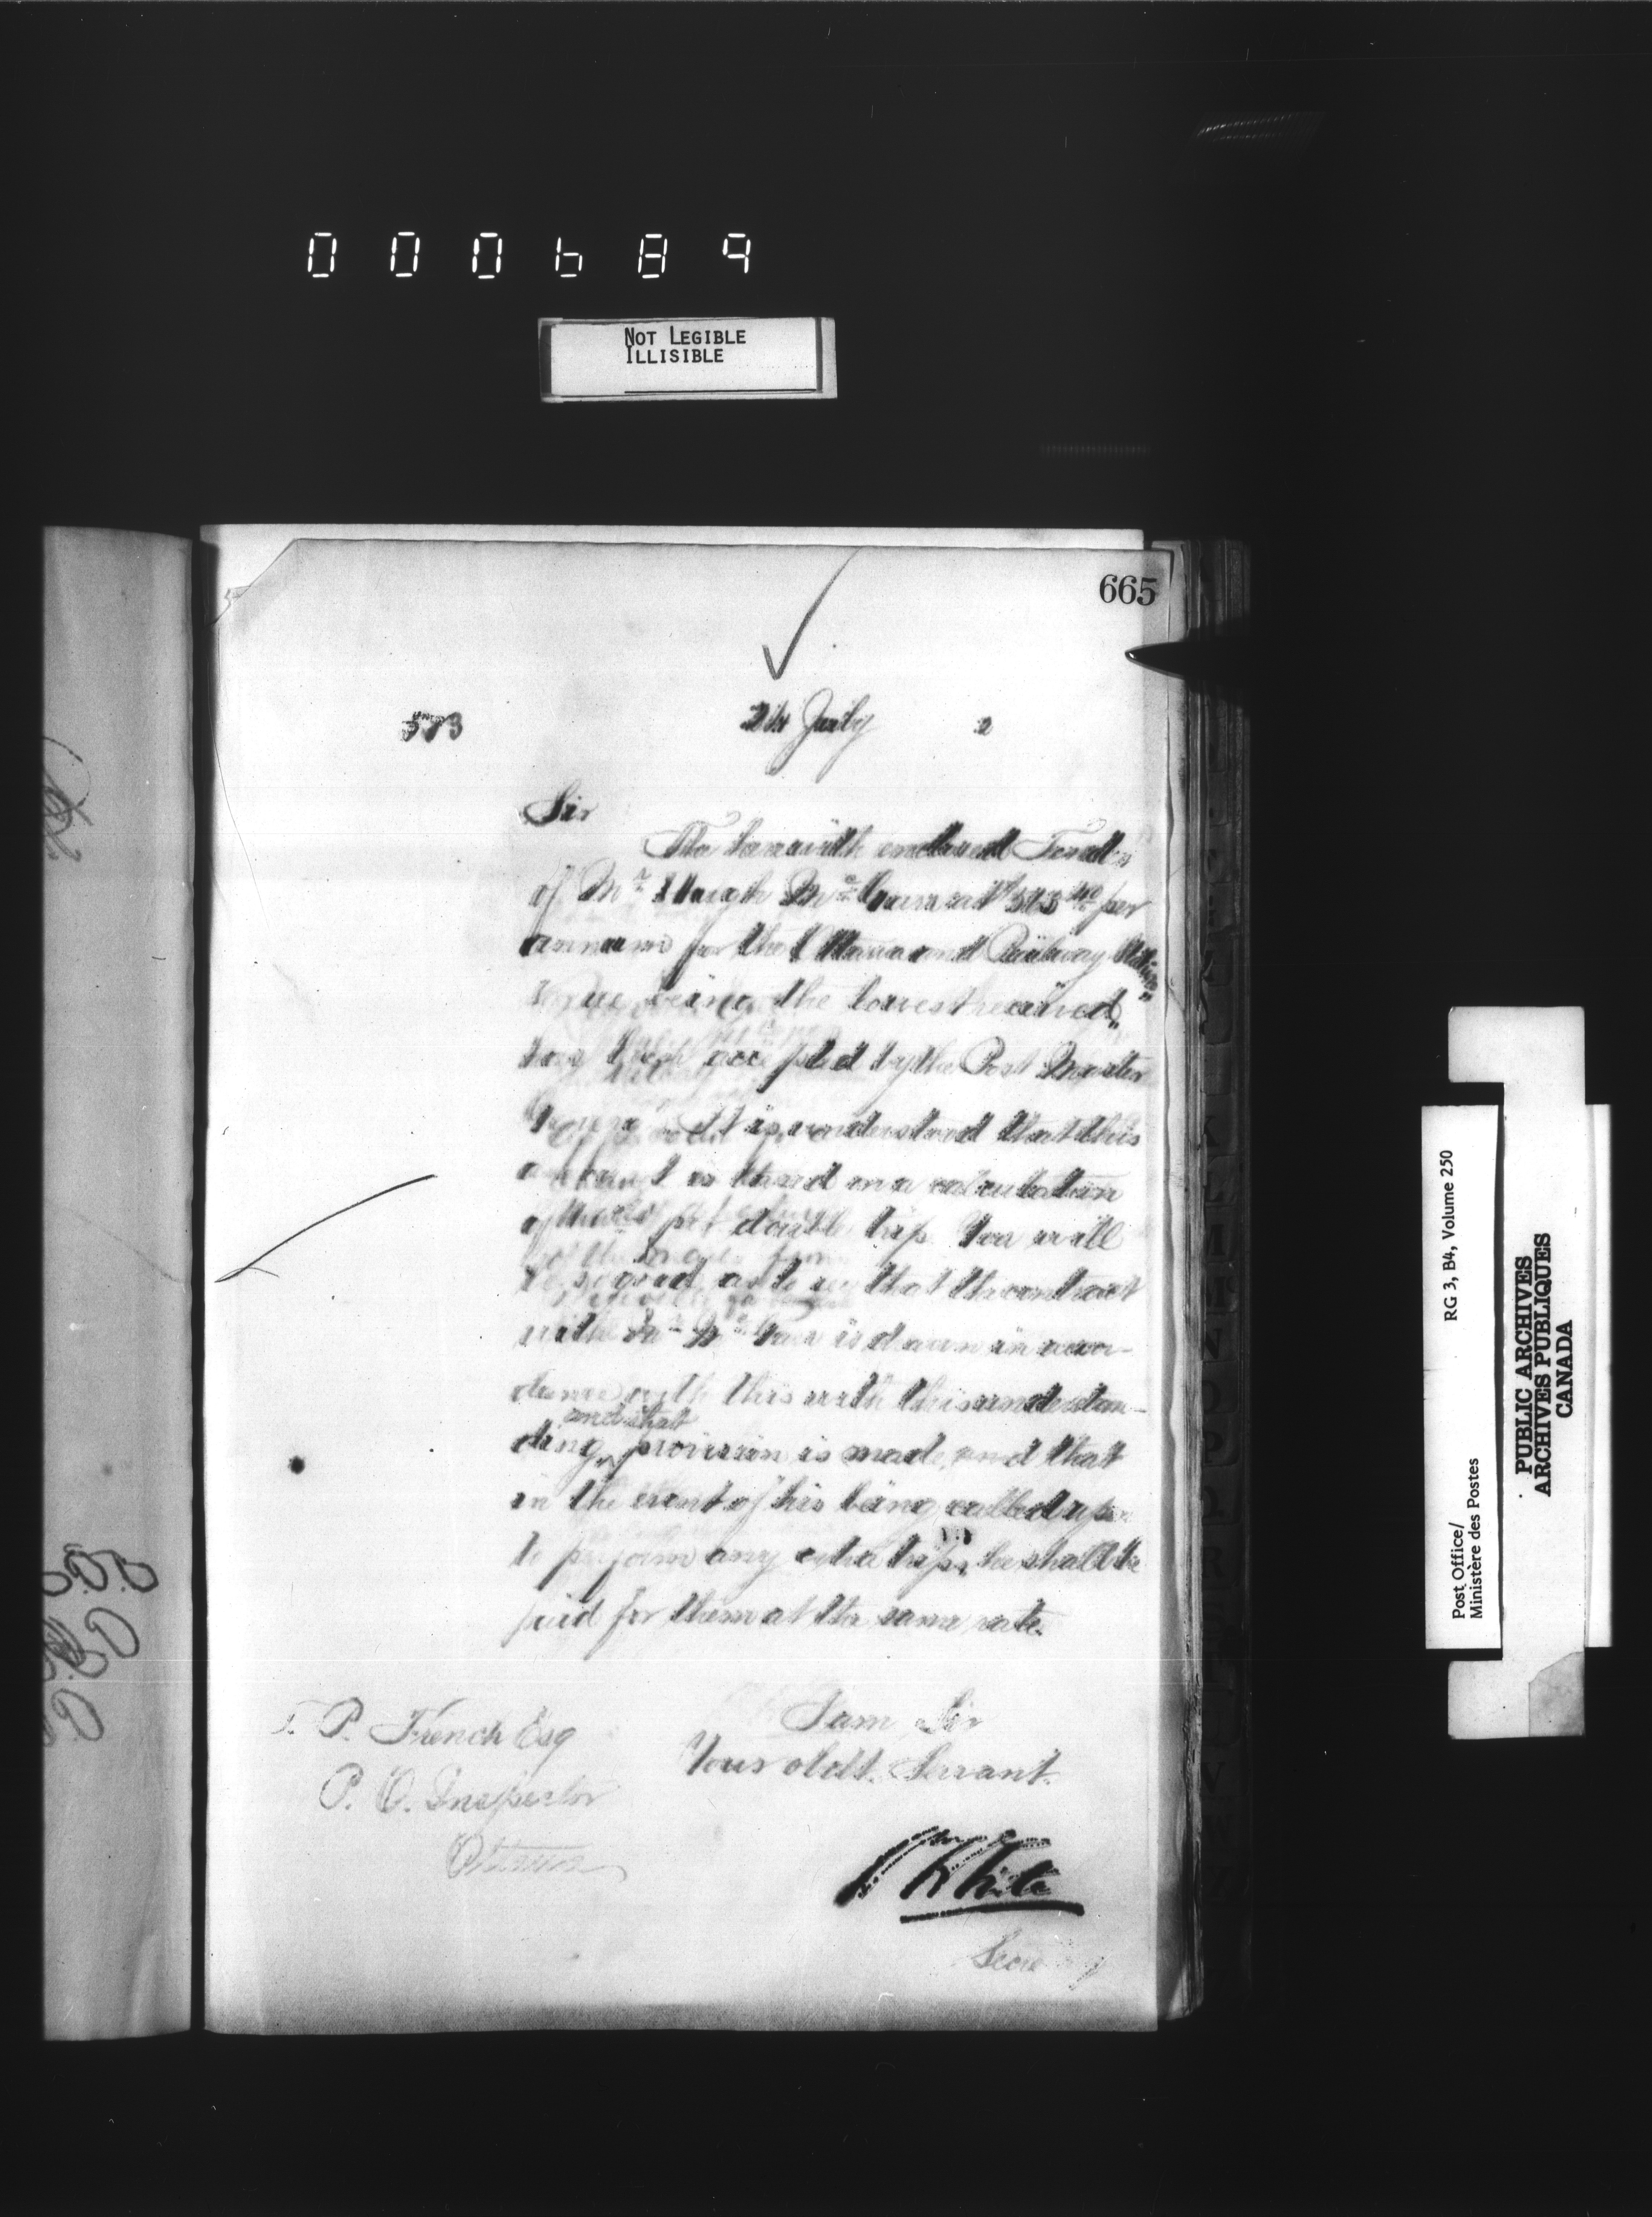 000689
NOT LEGIBLE
ILLISIBLE
665
573
24 July 2
Sir
The herewith enclosed Tender
of Mr Hugh Mc per
annum for the Ottawa and Railway
being the lowest received,
has been accepted by the Post Master
It is understood that this
amount is based on a calculation
of per double trip You will
be so good as to see that the contract
with Mr Mc is drawn in accor-
dance with this with this understan-
and that
ding, provision is made, and that
in the event of his being called upon
to perform any extra trips, he shall be
paid for them at the same rate.
I am Sir
Your obdt. Servant.
Wm White
Secretary
T. P. French Esq
P. O. Inspector
Ottawa
Post Office/
Ministère des Postes
RG 3, B4, Volume 250
PUBLIC ARCHIVES
ARCHIVES PUBLIQUES
CANADA